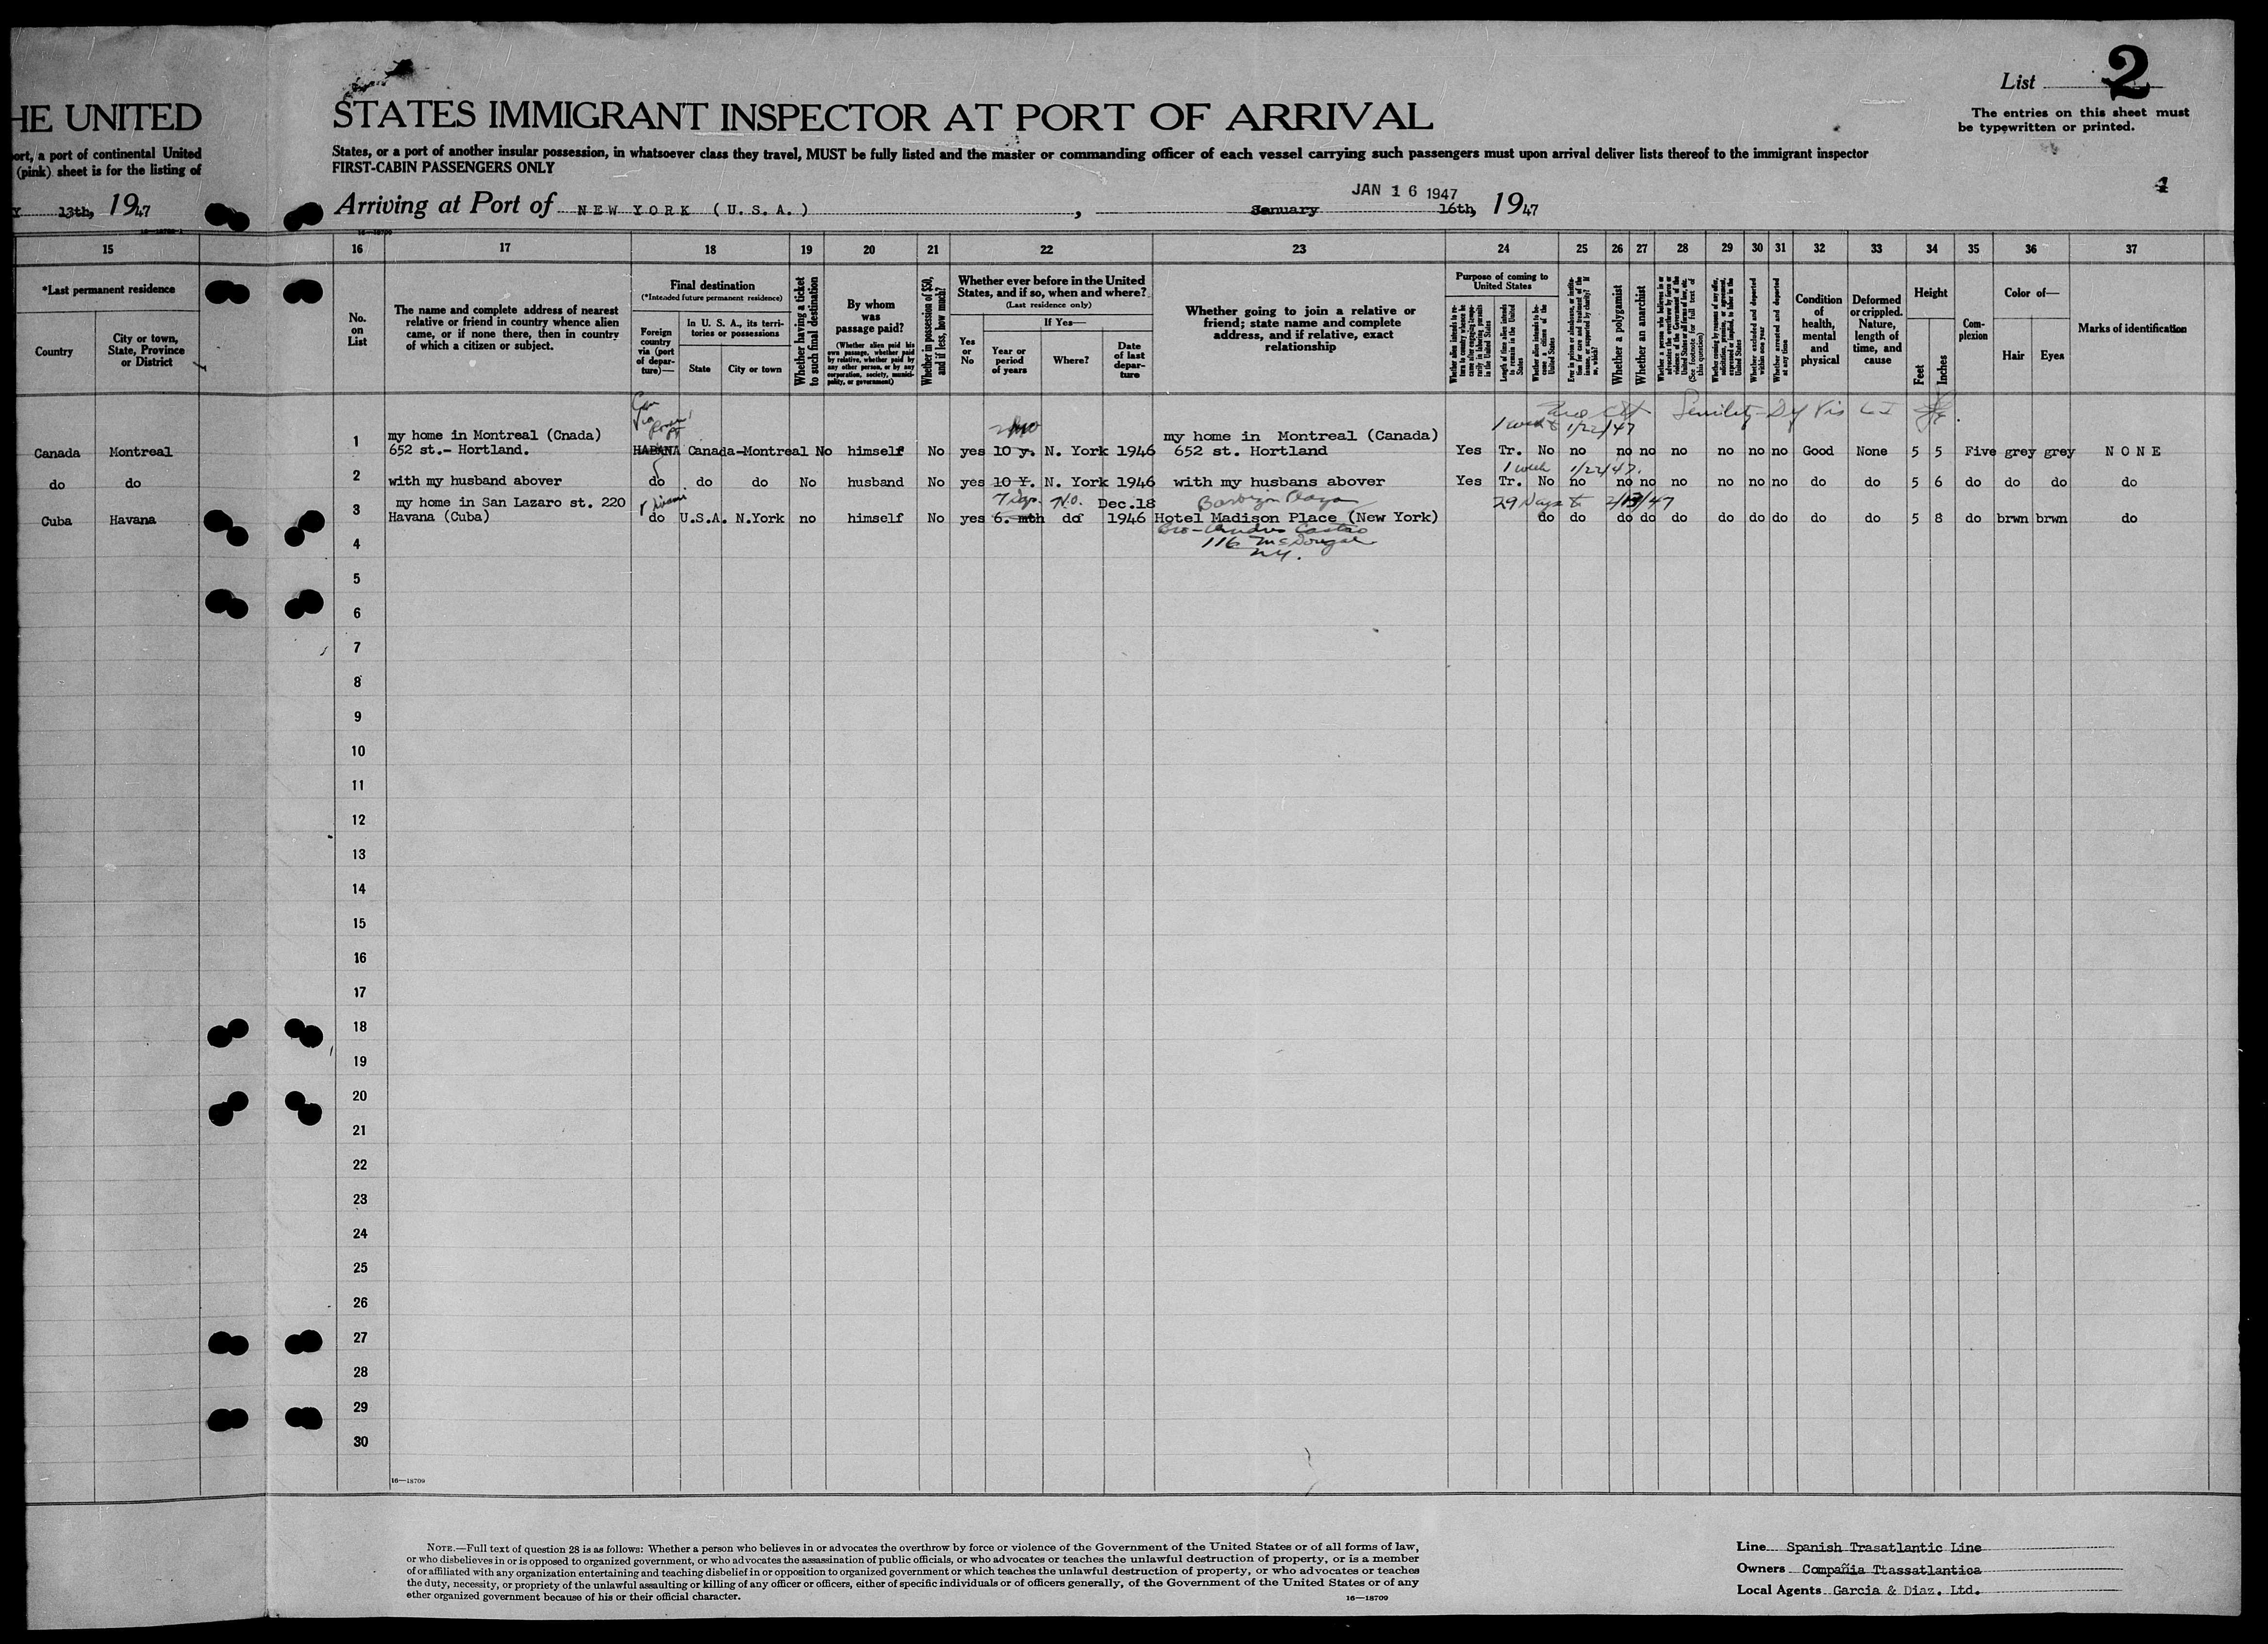 List 2
The entries on this sheet must
be typewritten or printed.
HE UNITED
STATES IMMIGRANT INSPECTOR AT PORT OF ARRIVAL
ort, a port of continental United
(pink) sheet is for the listing of
States, or a port of another insular possession, in whatsoever class they travel, MUST be fully listed and the master or commanding officer of each vessel carrying such passengers must upon arrival deliver lists thereof to the immigrant inspector
FIRST-CABIN PASSENGERS ONLY
13th, 1947
JAN 16 1947
Arriving at Port of NEW YORK (U.S.A.), January 16th, 1947
15 16 17 18 19 20 21 22 23 24 25 26 27 28 29 30 31 32 33 34 35 36 37
*Last permanent residence
Country
City or town, State, Province or District
No. on List
The name and complete address of nearest relative or friend in country whence alien came, or if none there, then in country of which a citizen or subject.
Final destination
(*Intended future permanent residence)
Foreign country via (port of departure)—
In U. S. A., its territories or possessions
State
City or town
Whether having a ticket to such final destination
By whom was passage paid?
(Whether alien paid his own passage, whether paid by relative, whether paid by any other person, or by any corporation, society, municipality, or government)
Whether in possession of $50, and if less, how much?
Whether ever before in the United States, and if so, when and where?
(Last residence only)
Yes or No
If Yes—
Year or period of years
Where?
Date of last departure
Whether going to join a relative or friend; state name and complete address, and if relative, exact relationship
Purpose of coming to United States
Length of time alien intends to remain in the United States
Whether alien intends to become a citizen of the United States
Whether a polygamist
Whether an anarchist
Whether excluded and deported within one year
Whether arrested and deported at any time
Condition of health, mental and physical
Deformed or crippled. Nature, length of time, and cause
Height
Feet
Inches
Complexion
Color of—
Hair
Eyes
Marks of identification
1 week 1/22/47
my home in Montreal (Cnada)
my home in Montreal (Canada)
Canada Montreal 1 652 st.- Hortland. HABANA Canada-Montreal No himself No yes 10 y. N. York 1946 652 st. Hortland Yes Tr. No no no no no no no no Good None 5 5 Five grey grey NONE
1 week 1/22/47.
do do 2 with my husband abover do do do No husband No yes 10 Y. N. York 1946 with my husbans abover Yes Tr. No no no no no no no no do do 5 6 do do do do
my home in San Lazaro st. 220
7 dys. N.O. Dec.18 Barbizon Plaza 29 Days
Cuba Havana 3 Havana (Cuba) do U.S.A. N.York no himself No yes 6. mth do 1946 Hotel Madison Place (New York) do do do do do do do do do do 5 8 do brwn brwn do
Castro
116 McDougal
N.Y.
4
5
6
7
8
9
10
11
12
13
14
15
16
17
18
19
20
21
22
23
24
25
26
27
28
29
30
16—18709
NOTE.—Full text of question 28 is as follows: Whether a person who believes in or advocates the overthrow by force or violence of the Government of the United States or of all forms of law,
or who disbelieves in or is opposed to organized government, or who advocates the assassination of public officials, or who advocates or teaches the unlawful destruction of property, or is a member
of or affiliated with any organization entertaining and teaching disbelief in or opposition to organized government or which teaches the unlawful destruction of property, or who advocates or teaches
the duty, necessity, or propriety of the unlawful assaulting or killing of any officer or officers, either of specific individuals or of officers generally, of the Government of the United States or of any
other organized government because of his or their official character.
16—18709
Line Spanish Trasatlantic Line
Owners Compañia Ttassatlantica
Local Agents Garcia & Diaz. Ltd.